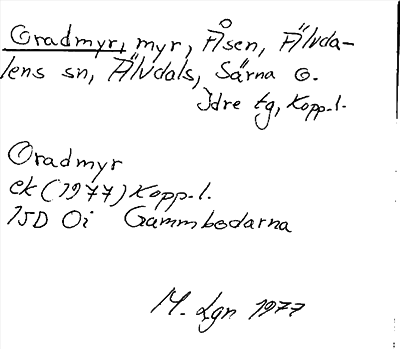 Oradmyr, myr, Åsen, Älvda-
lens sn, Älvdals, Särna o.
Idre tg, Kopp.l.
Oradmyr
ek (1977) Kopp.l.
15D 0i Gammbodarna
M. Lgn 1977